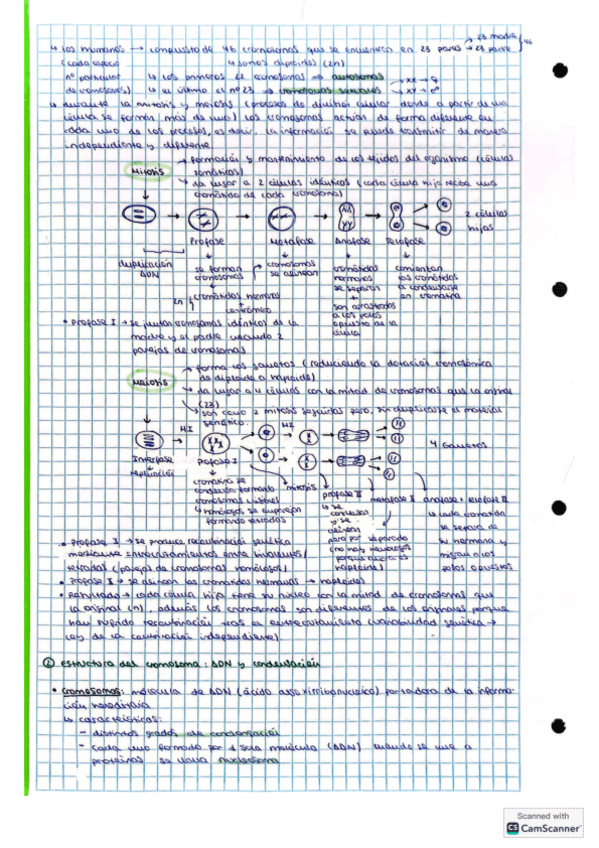 ↳ los humanos → compuesto de 46 cromosomas que se encuentran en 23 pares → 23 madre → 23 padre } 46
(cada especie ↳ somos diploides (2n)
nº particular ↳ los primeros 22 cromosomas → autosomas
de cromosomas) ↳ el último el nº 23 → cromosomas sexuales → xx → ♀ → xy → ♂
↳ durante la mitosis y meiosis (procesos de división celular donde a partir de una
célula se forman más de una) los cromosomas actúan de forma diferente en
cada uno de los procesos, es decir, la información se puede transmitir de manera
independiente y diferente
Mitosis → formación y mantenimiento de los tejidos del organismo (células
somáticas)
→ da lugar a 2 células idénticas (cada célula hija recibe una
cromátida de cada cromosoma)
2 células
hijas
Profase Metafase Anafase Telofase
duplicación
ADN
se forman
cromosomas
cromátidas hermanas
centrómero
2n
cromosomas
se alinean
cromátidas
hermanas
se separan
son arrastradas
a los polos
opuestos de la
célula
comienzan
las cromátidas
a condensarse
en cromatina
• Profase I → se juntan cromosomas idénticos de la
madre y el padre creando 2
parejas de cromosomas
Meiosis → forma los gametos (reduciendo la dotación cromosómica
de diploide a haploide)
→ da lugar a 4 células con la mitad de cromosomas que la original
(23)
→ son como 2 mitosis seguidas pero, sin duplicarse el material
genético.
M1 M2
4 gametos
Interfase
replicación
Profase I
cromatina se
condensa formando
cromosomas visibles
↳ homólogos se emparejan
formando tétradas
mitosis
profase II
↳ se
condensan
y se
alinean
pero por separado
(no hay homólogos
porque ahora es
haploide)
metafase II anafase + telofase II
↳ cada cromátida
se separa de
su hermana y
migran a los
polos opuestos
• Profase I → se produce recombinación genética
mediante entrecruzamientos entre bivalentes/
tétradas (parejas de cromosomas homólogos)
• Profase II → se alinean las cromátidas hermanas → haploides
• Resultado → cada célula hija tiene su núcleo con la mitad de cromosomas que
la original (n), además los cromosomas son diferentes de los originales porque
han sufrido recombinación tras el entrecruzamiento (variabilidad genética →
ley de la combinación independiente)
② Estructura del cromosoma: ADN y condensación
• Cromosomas: molécula de ADN (ácido desoxirribonucleico) portadora de la informa-
ción hereditaria
↳ características:
- distintos grados de condensación
- cada uno formado por 1 sola molécula (ADN) cuando se une a
proteínas se llama nucleosoma
Scanned with
CS CamScanner